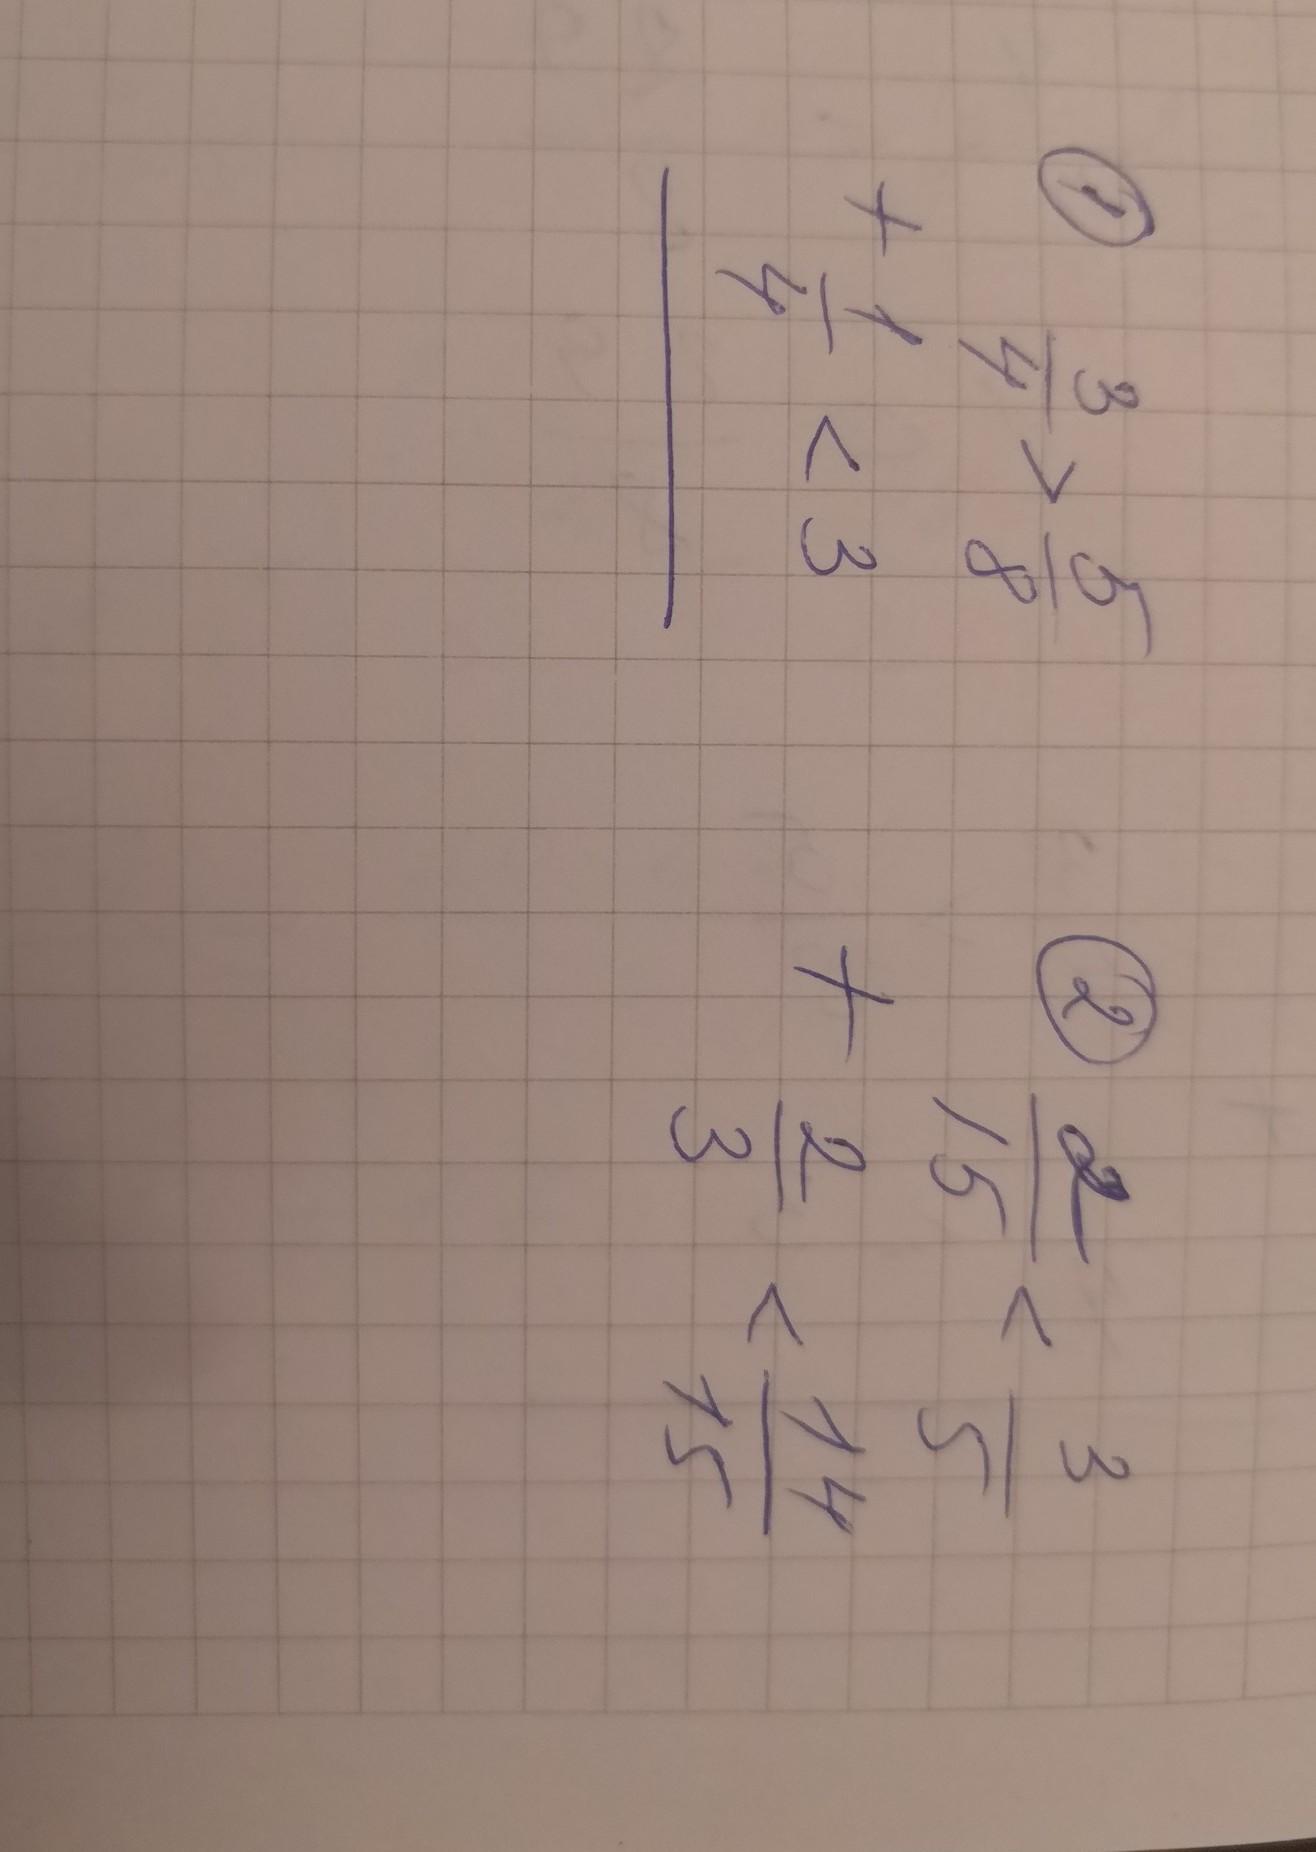 ① 3/4 > 5/8
+ 1/4 < 3
② 2/15 < 3/5
+ 2/3 < 14/15